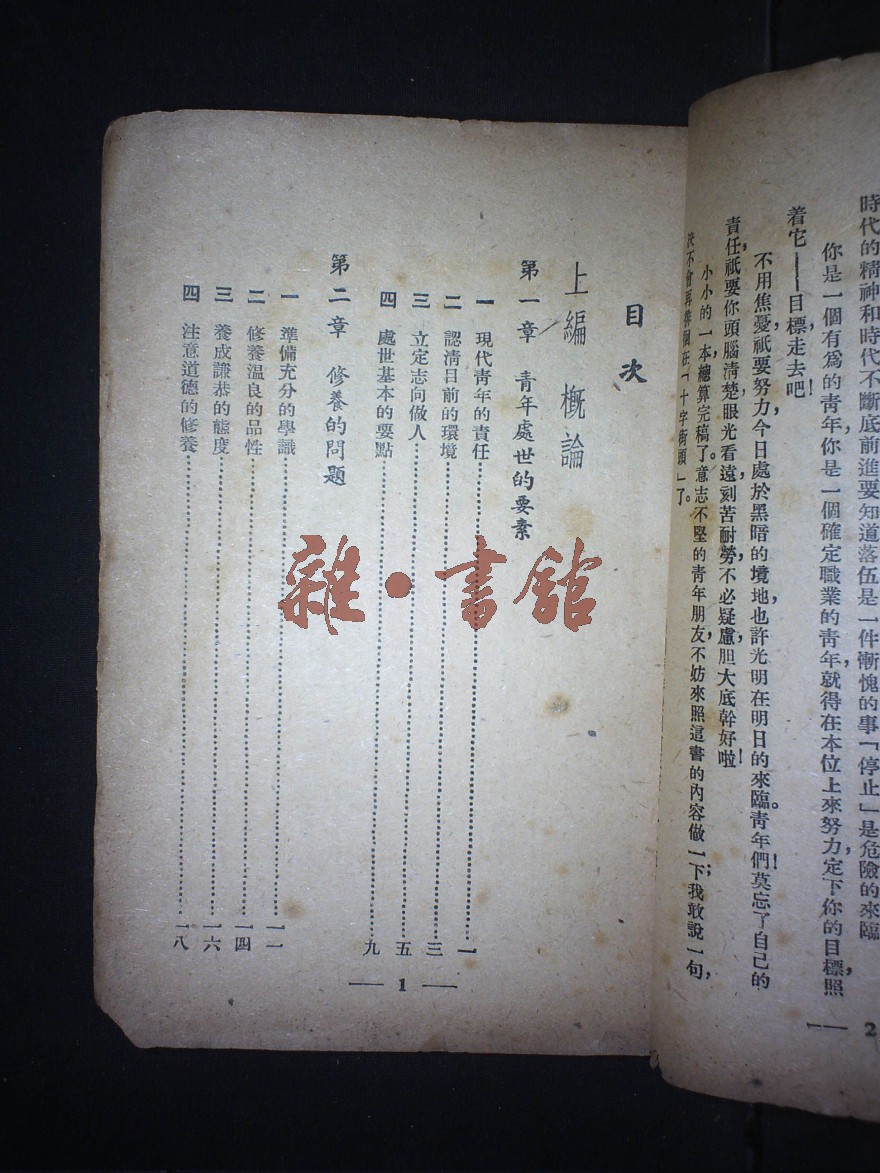 時代的精神和時代不斷底前進要知道落伍是一件慚愧的事「停止」是危險的來臨
你是一個有爲的青年，你是一個確定職業的青年，就得在本位上來努力定下你的目標，照
着它——目標走去吧！
不用焦憂，祇要努力，今日處於黑暗的境地，也許光明在明日的來臨。青年們！莫忘了自己的
責任，祇要你頭腦清楚，眼光看遠，刻苦耐勞，不必疑慮，胆大底幹好啦！
小小的一本，總算完稿了。意志不堅的青年朋友，不妨來照這書的內容做一下；我敢說一句，
決不會再徘徊在「十字街頭」了。
2
目次
上編 概論
第一章 青年處世的要素
一 現代青年的責任 一
二 認清目前的環境 三
三 立定志向做人 五
四 處世基本的要點 九
第二章 修養的問題
一 準備充分的學識 一二
二 修養溫良的品性 一四
三 養成謙恭的態度 一六
四 注意道德的修養 一八
1
雜·書館